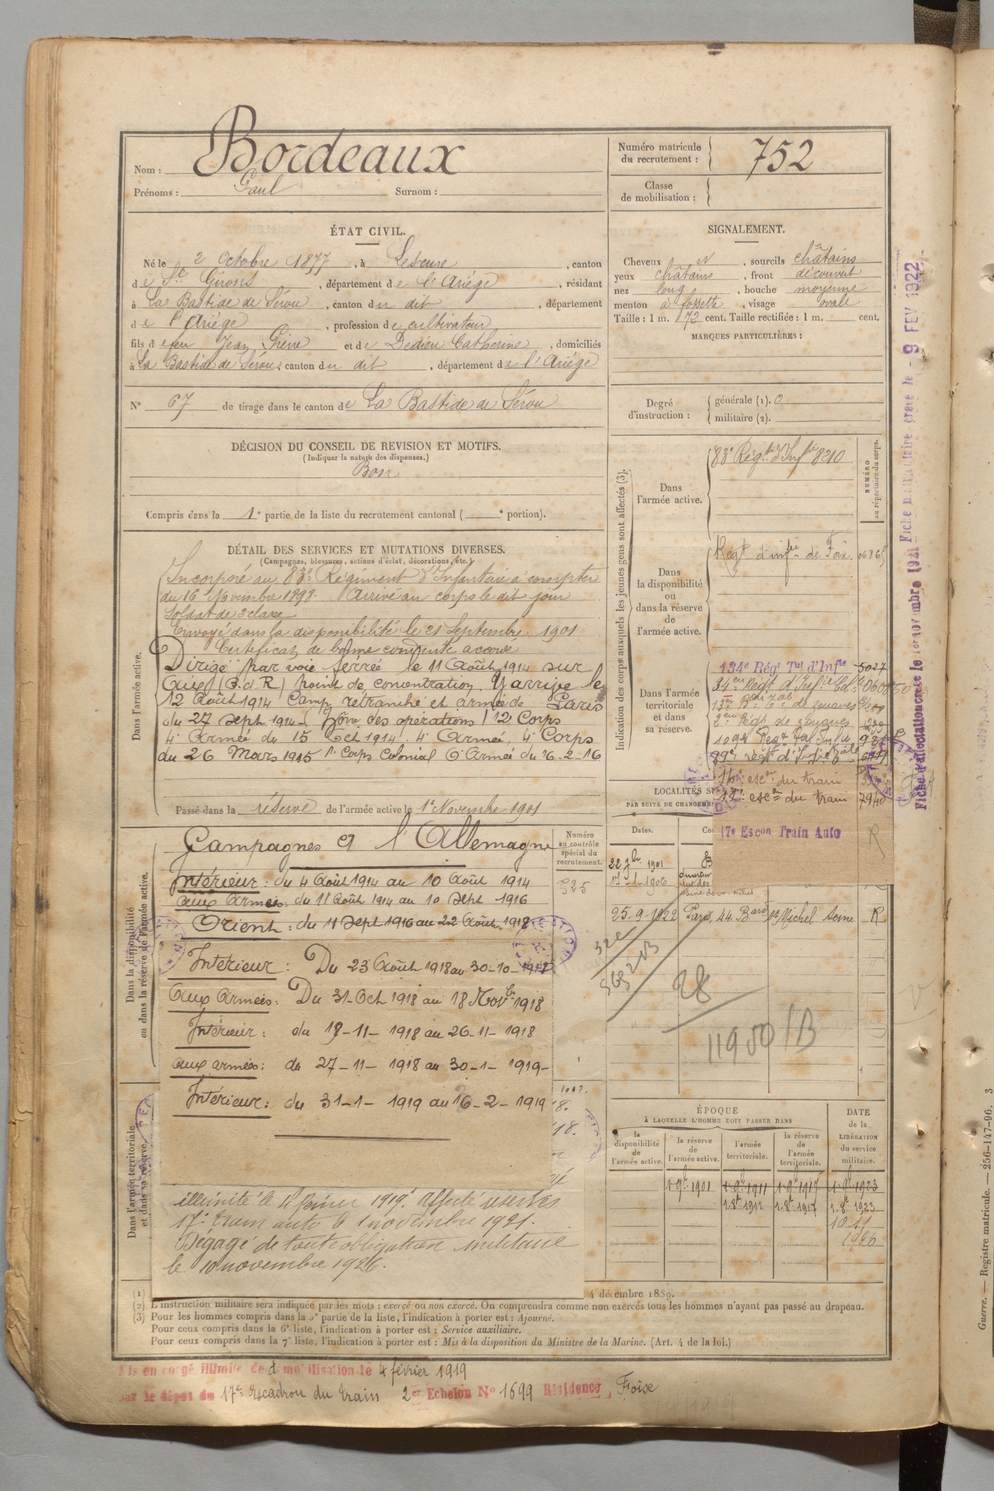 Nom : Bordeaux
Prénoms : Paul Surnom :
Numéro matricule du recrutement : 752
Classe de mobilisation :
ÉTAT CIVIL.
Né le 2 Octobre 1877, à Lescure, canton
de St Girons, département de l'Ariège, résidant
à La Bastide de Sérou, canton du dit, département
de l'Ariège, profession de cultivateur
fils de feu Jean Pierre et de Dedieu Catherine, domiciliés
à La Bastide de Sérou, canton du dit, département de l'Ariège
N° 67 de tirage dans le canton de La Bastide de Sérou
SIGNALEMENT.
Cheveux , sourcils châtains
yeux châtains, front découvert
nez long, bouche moyenne
menton à fossette, visage ovale
Taille : 1 m. 72 cent. Taille rectifiée : 1 m. cent.
MARQUES PARTICULIÈRES :
Degré d'instruction : générale (1). 0
militaire (2).
DÉCISION DU CONSEIL DE REVISION ET MOTIFS.
(Indiquer la nature des dispenses.)
Bon
Compris dans la 1e partie de la liste du recrutement cantonal ( e portion).
DÉTAIL DES SERVICES ET MUTATIONS DIVERSES.
(Campagnes, blessures, actions d'éclat, décorations, etc.)
Dans l'armée active.
Incorporé au 83e Régiment d'Infanterie à compter
du 16 Novembre 1898. Arrivé au corps le dit jour
Soldat de 2e classe
Envoyé dans la disponibilité le 21 Septembre 1901
Certificat de bonne conduite accordé
Dirigé par voie ferrée le 11 Août 1914 sur
(G.d.R) point de concentration. Y arrive le
12 Août 1914 Camp retranché et armée de Paris
du 27 Sept 1914 Zone des opérations 12 Corps
4e Armée du 15 Oct 1914. 4e Armée, 4e Corps
du 26 Mars 1915 1er Corps Colonial 6e Armée du 16-2-16
Passé dans la réserve de l'armée active le 1er Novembre 1901
Indication des corps auxquels les jeunes gens sont affectés (3).
NUMÉRO au répertoire du corps.
Dans l'armée active.
83e Régt d'Infie 8210
Dans la disponibilité ou dans la réserve de l'armée active.
Régt d'infie de Foix.
Dans l'armée territoriale et dans sa réserve.
134e Régt Tal d'Infie 5027
34e Régt d'Infie Cale
2e Régt de zouaves
109e Régt Tal Infie
89e régt d'Infie
esc. du train
esc. du train 7940
17e Escon Train Auto R
Fiche matriculaire créée le 9 FEV 1922
Fiche d'affectation créée le novembre 1921
LOCALITÉS SU
PAR SUITE DE CHANGEM
Dates.
22 7bre 1901
25-9-1922 Paris, 44 Bard St Michel Seine R
28
11950/B
Dans la disponibilité ou dans la réserve de l'armée active.
Numéro au contrôle spécial du recrutement.
525
Campagnes Ct l'Allemagne
Intérieur : du 4 Août 1914 au 10 Août 1914
aux Armées : du 11 Août 1914 au 10 Sept 1916
Orient : du 11 Sept 1916 au 22 Août 1918
Intérieur : Du 23 Août 1918 au 30-10-1918
aux Armées : Du 31 Oct 1918 au 18 Novbre 1918
Intérieur : du 19-11-1918 au 26-11-1918
aux armées : du 27-11-1918 au 30-1-1919
Intérieur : du 31-1-1919 au 16-2-1919
Dans l'armée territoriale et dans sa réserve.
illimité le 4 février 1919. Affecté réserves
17e train auto le 1 novembre 1921.
Dégagé de toute obligation militaire
le 10 novembre 1926.
ÉPOQUE
À LAQUELLE L'HOMME DOIT PASSER DANS
DATE de la LIBÉRATION du service militaire.
la disponibilité de l'armée active.
la réserve de l'armée active.
l'armée territoriale.
la réserve de l'armée territoriale.
1-9bre 1901 1-9bre 1911 1-9bre 1917 1-9bre 1923
1.8bre 1911 1.8bre 1917 1.8bre 1923
10 11
1926
4 décembre 1889.
(2) L'instruction militaire sera indiquée par les mots : exercé ou non exercé. On comprendra comme non exercés tous les hommes n'ayant pas passé au drapeau.
(3) Pour les hommes compris dans la 5e partie de la liste, l'indication à porter est : Ajourné.
Pour ceux compris dans la 6e liste, l'indication à porter est : Service auxiliaire.
Pour ceux compris dans la 7e liste, l'indication à porter est : Mis à la disposition du Ministre de la Marine. (Art. 4 de la loi.)
is en congé illimité de démobilisation le 4 février 1919
ar le dépôt du 17e Escadron du train 2e Echelon N° 1699 Résidence, Foix
Guerre. — Registre matricule. — 256-147-96. 3